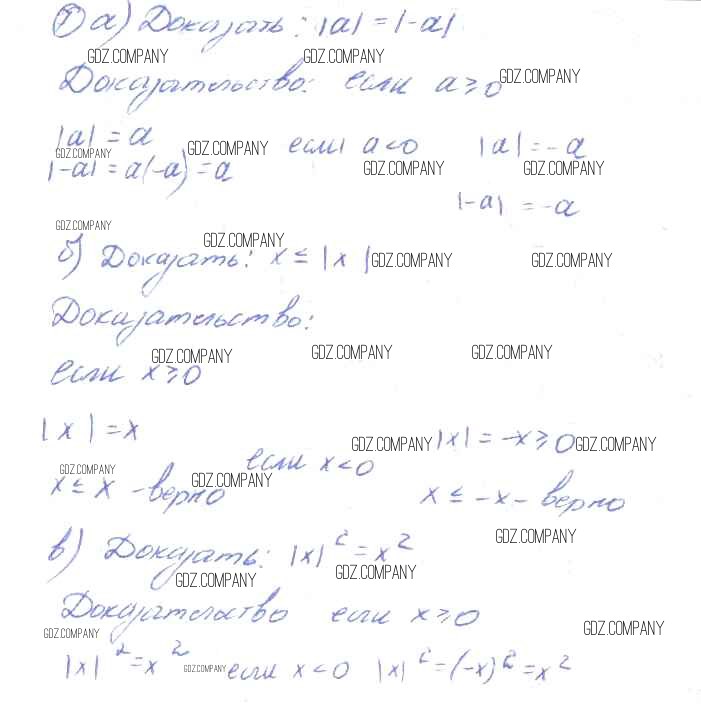 ① а) Доказать: |a| = |-a|
GDZ.COMPANY GDZ.COMPANY
Доказательство: если a ≥ 0 GDZ.COMPANY
|a| = a GDZ.COMPANY если a < 0 |a| = -a
GDZ.COMPANY
|-a| = a(-a) = a GDZ.COMPANY GDZ.COMPANY
|-a| = -a
GDZ.COMPANY
GDZ.COMPANY
б) Доказать: x ≤ |x| GDZ.COMPANY GDZ.COMPANY
Доказательство:
GDZ.COMPANY GDZ.COMPANY GDZ.COMPANY
если x ≥ 0
|x| = x GDZ.COMPANY |x| = -x ≥ 0 GDZ.COMPANY
GDZ.COMPANY если x < 0
x ≤ x - верно GDZ.COMPANY x ≤ -x - верно
GDZ.COMPANY
в) Доказать: |x|² = x²
GDZ.COMPANY GDZ.COMPANY
Доказательство если x ≥ 0
GDZ.COMPANY GDZ.COMPANY
|x|² = x² GDZ.COMPANY если x < 0 |x|² = (-x)² = x²